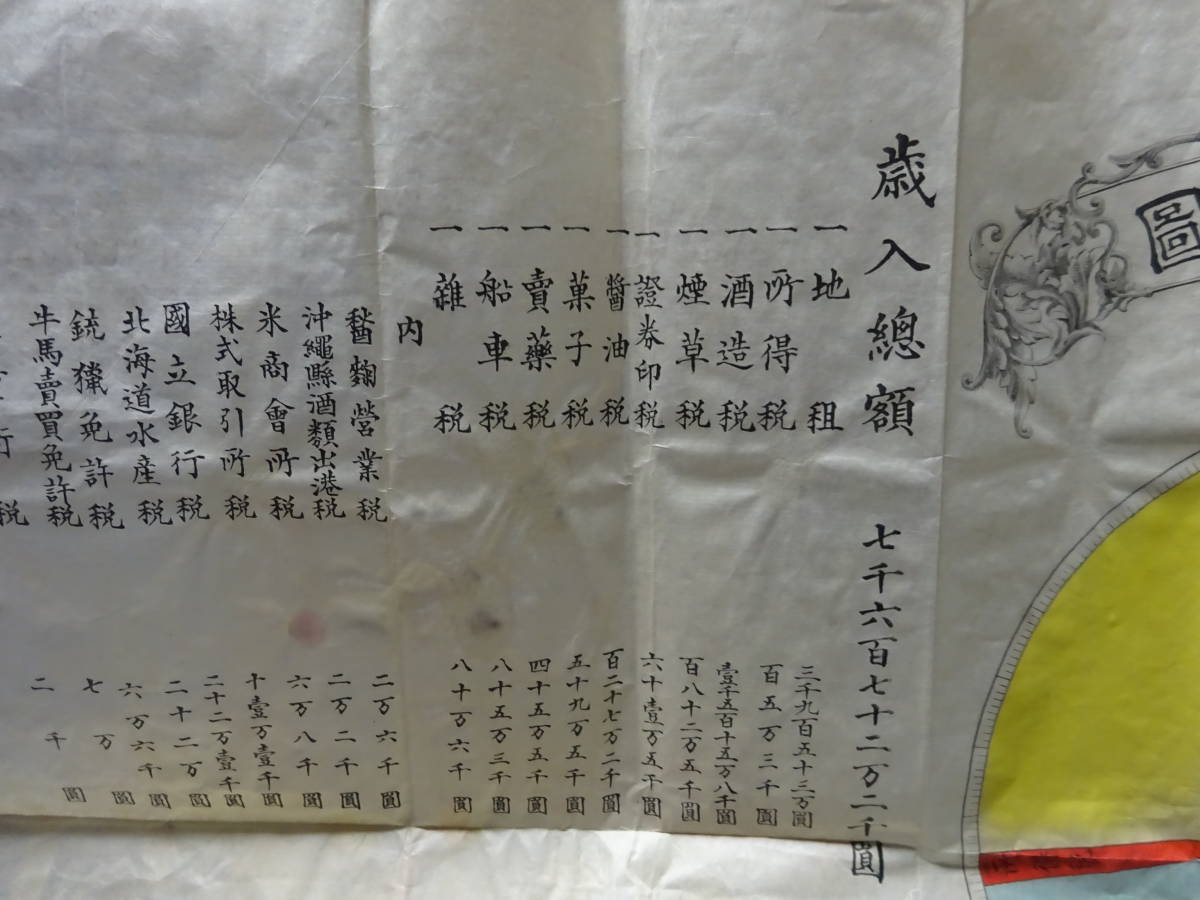 圖
歳入總額 七千六百七十二万二千圓
一地租 三千九百五十三万圓
一所得税 百五万三千圓
一酒造税 壹千五百十五万八千圓
一煙草税 百八十二万五千圓
一證券印税 六十壹万五千圓
一醬油税 百二十七万二千圓
一菓子税 五十九万五千圓
一賣藥税 四十五万五千圓
一船車税 八十五万三千圓
一雜税 八十万六千圓
内
醫麴營業税 二万六千圓
沖繩縣酒類出港税 二万二千圓
米商會所税 六万八千圓
株式取引所税 十壹万壹千圓
國立銀行税 二十二万壹千圓
北海道水産税 二十二万圓
銃獵免許税 六万六千圓
牛馬賣買免許税 七万圓
行税 二千圓